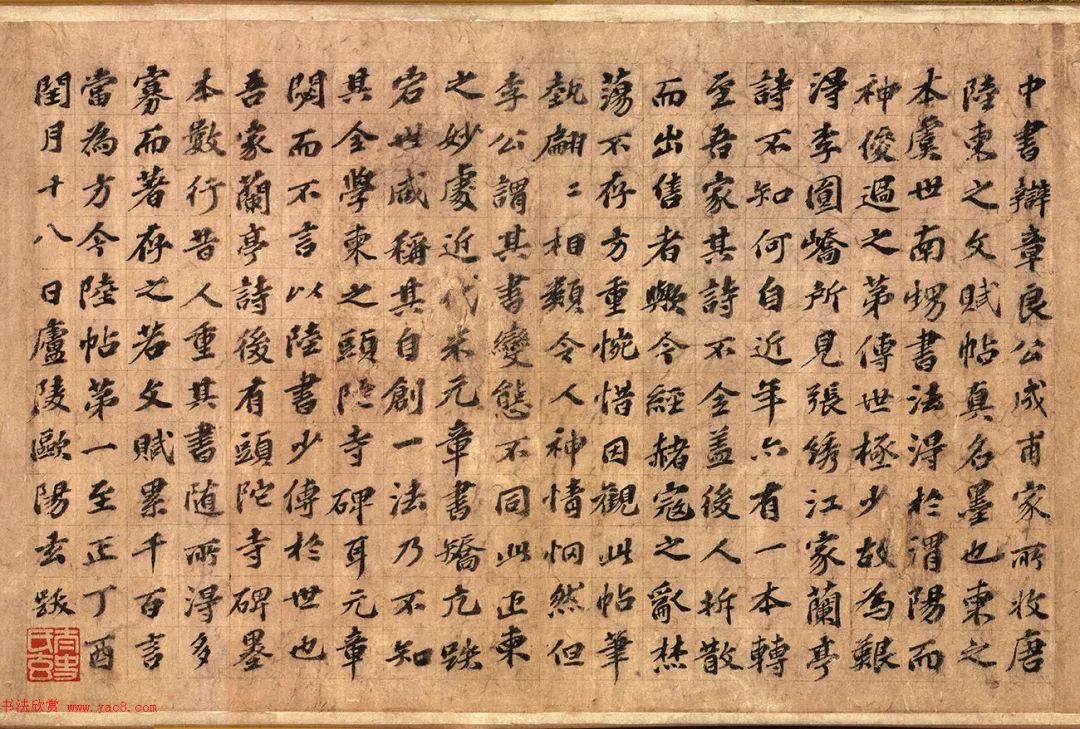 中書辯章良公成甫家所收唐
陸柬之文賦帖真名墨也柬之
本虞世南甥書法得於渭陽而
神俊過之第傳世極少故為艱
得李圓嶠所見張綉江家蘭亭
詩不知何自近年亦有一本轉
至吾家其詩不全盖後人拆散
而出售者歟今經赭寇之亂焚
蕩不存方重惋惜因觀此帖筆
埶翩〻相類令人神情惘然但
李公謂其書變態不同此正柬
之妙處近代米元章書矯亢跌
宕世咸稱其自創一法乃不知
其全學柬之頭陁寺碑耳元章
閟而不言以陸書少傳於世也
吾家蘭亭詩後有頭陀寺碑墨
本數行昔人重其書随所得多
寡而著存之若文賦累千百言
當為方今陸帖第一至正丁酉
閏月十八日廬陵歐陽玄跋
书法欣赏 www.yac8.com